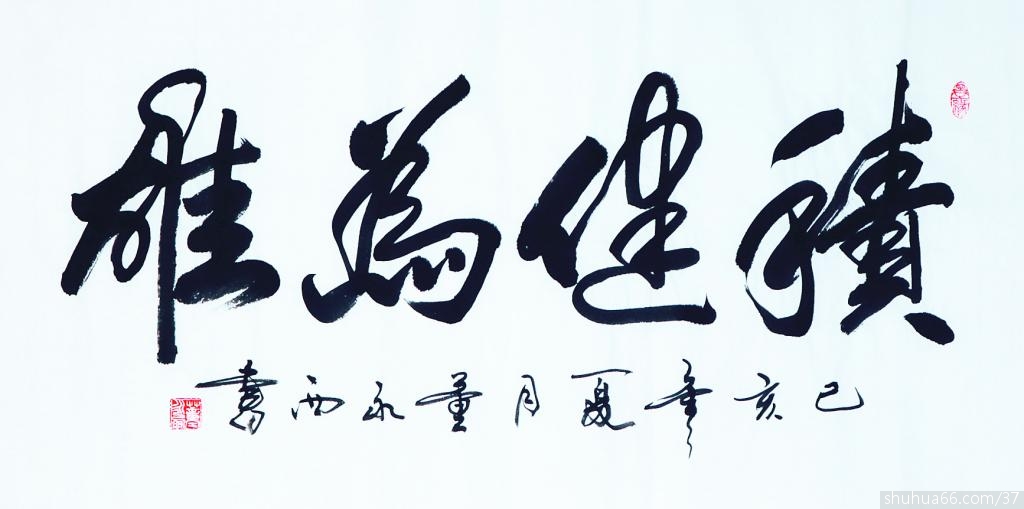 積健為雄
己亥年夏月董永西書
shuhua66.com/37